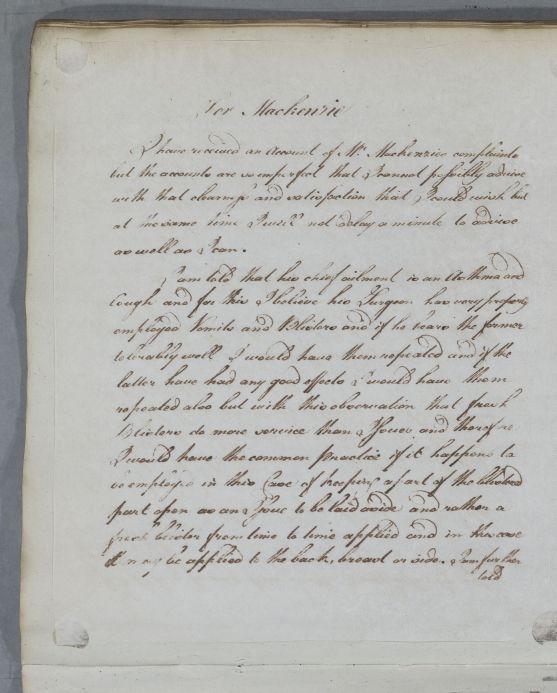 For Mackenzie
I have received an Account of Mr. Mackenzies complaints
but the accounts are so imperfect that I cannot possibly advise
with that clearness and satisfaction that I could wish but
at the same time I will not delay a minute to advise
as well as I can.
I am told that his chief ailment is an Asthma and
Cough and for this I believe his Surgeon has very properly
employed Vomits and Blisters and if he bears the former
tolerably well I would have them repeated and if the
latter have had any good effects I would have them
repeated also but with this observation that fresh
Blisters do more service than Issues and therefore
I would have the common practice if it happens to
be employed in this Case of keeping a part of the blistered
part open as an Issue to be laid aside and rather a
fresh blister from time to time applied and in this case
it may be applied to the back, breast or side. I am further
told